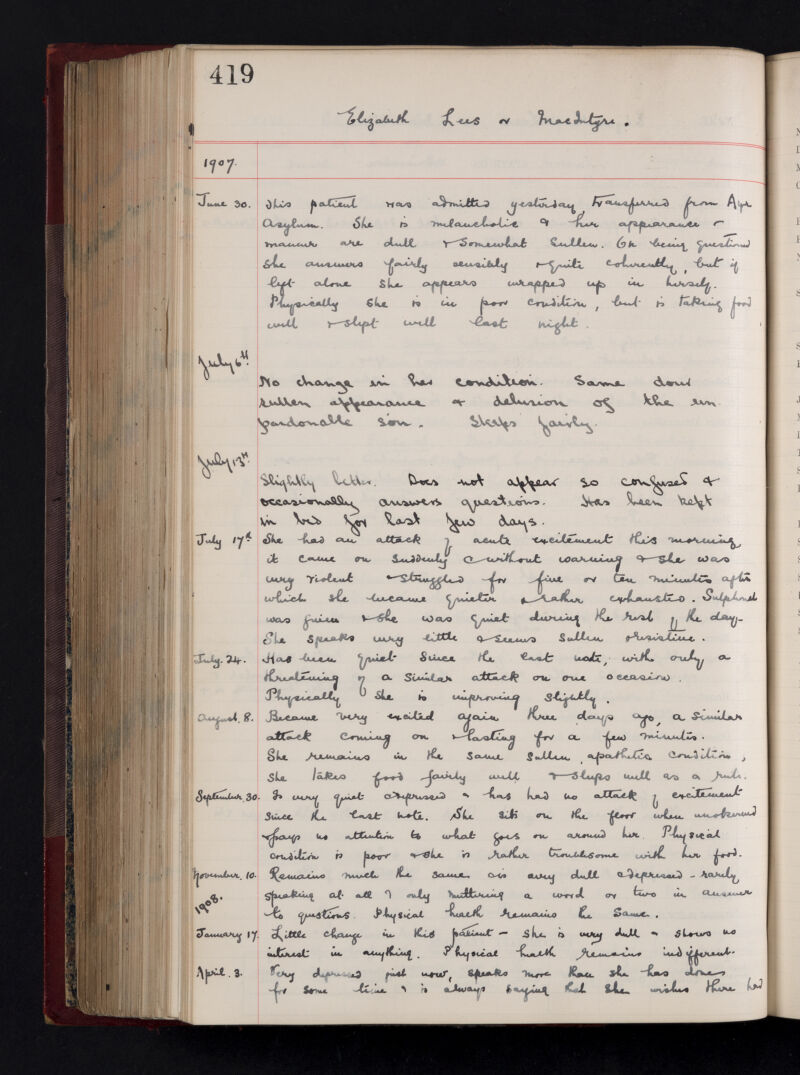 419
Elizabeth Lees or MacIntyre.
1907.
June 30. This patient was admitted yesterday, transferred from Ayr
Asylum. She is melancholic & her appearance &
manner are dull & somewhat sullen. On being questioned
she answers fairly sensibly & quite coherently, but if
left alone she appears wrapped up in herself.
Physically she is in poor condition, but is taking food
well & slept well last night.
July 6th.
No change in her condition. Same dour
sullen appearance & delusion of the un
pardonable sin. Sleeps fairly.
July 13th.
Slightly better. Does not appear so confused &
occasionally answers questions. Has been kept
in bed for last few days.
July 17th She had an attack of acute excitement this morning,
it came on suddenly & without warning & she was
very violent & struggled for five or ten minutes after
which she became quieter & rather exhausted. Sulphonal
was given & she was quiet during the rest of the day.
She speaks very little & seems sullen & resistive.
July. 24. Has been quiet since the last note, with only a
threatening of a similar attack on one occasion.
Physically she is improving slightly.
August. 8. Became very excited again three days ago, a similar
attack coming on & lasting for a few minutes.
She remains in the same sullen, apathetic condition,
she takes food fairly well & sleeps well as a rule.
September. 30. Is very quiet & depressed & has had no attack of excitement
since the last note. She sits on the floor when unobserved
& pays no attention to what goes on around her. Physical
condition is poor & she is rather troublesome with her food.
November. 10. Remains much the same. Is very dull & depressed - rarely
speaking at all & only muttering a word or two in answer
1908.
to questions. Physical health remains the same.
January 17. Little change in this patient - she is very dull & shows no
interest in anything. Physical health remains indifferent.
April. 3. Very depressed just now, speaks more than she has done
for some time & is always saying that she wishes there had